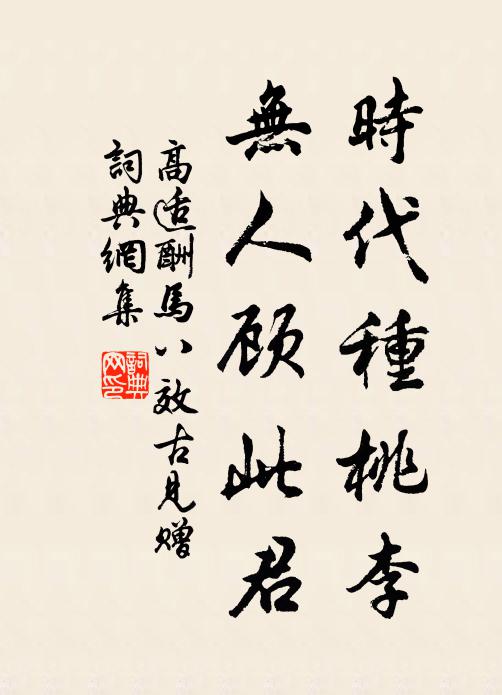 時代種桃李
無人顾此君
高适酬馬八效古見贈
詞典網集
詞典网印